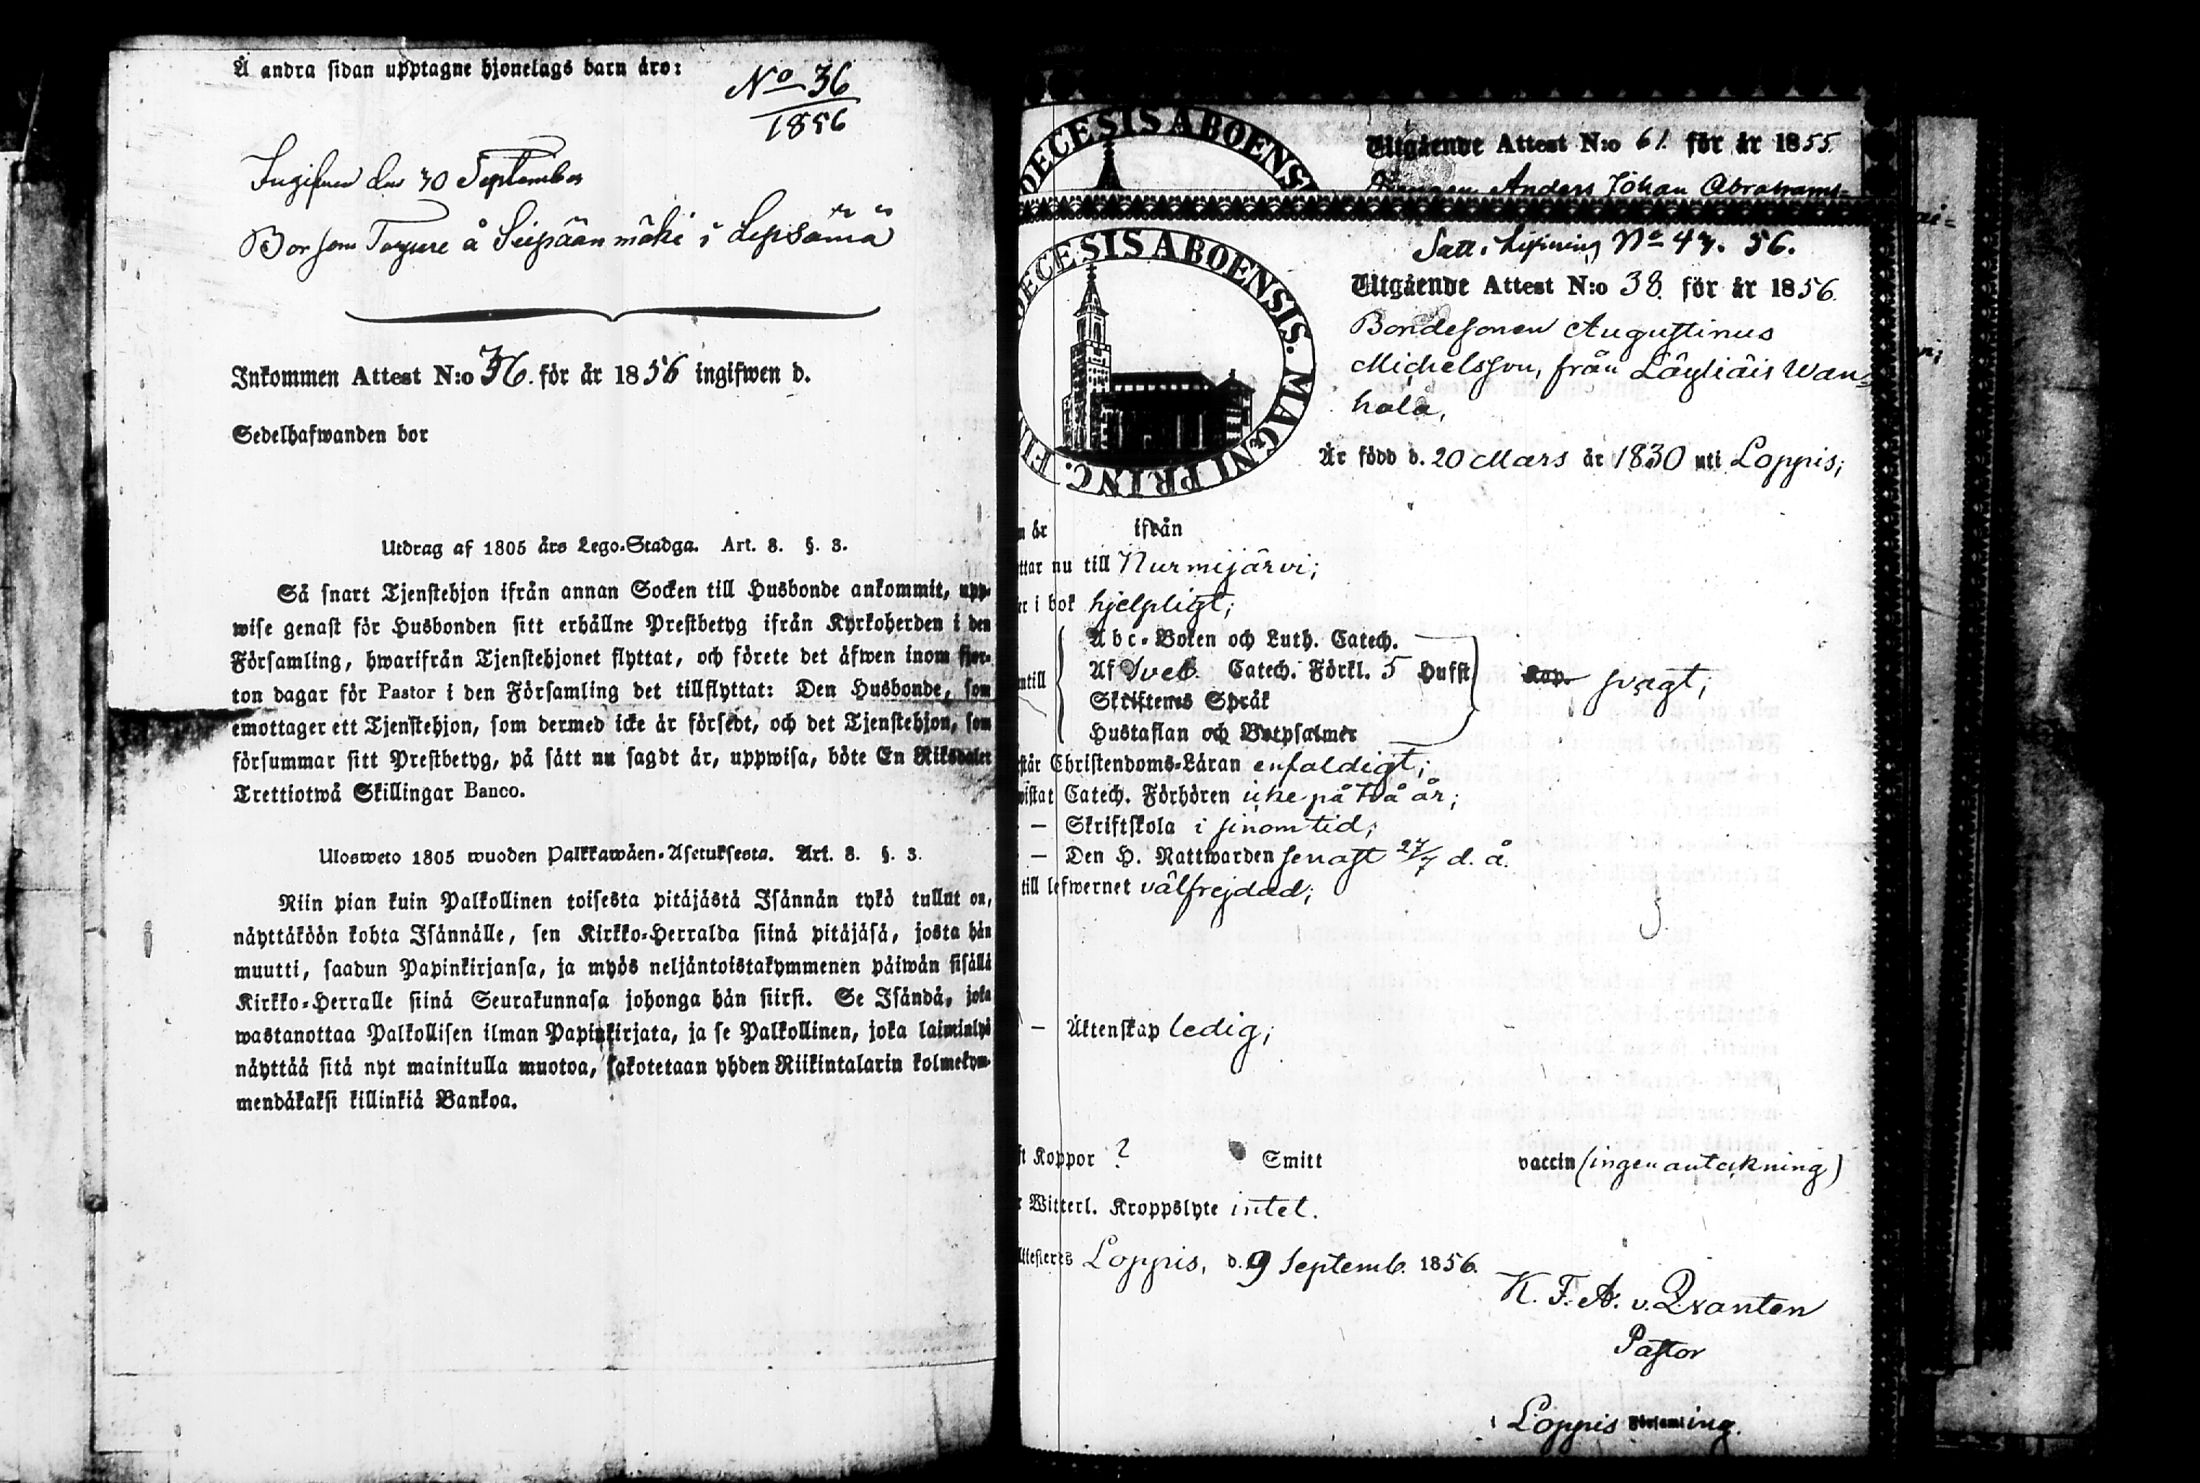 Å andra sidan upptagne hjonelags barn äro:
No 36
1856
Ingifven den 30 September
Bor som Torpare å Seipäänmäki i Lepsämä
Inkommen Attest N:o 36. för år 1856 ingifwen d.
Sedelhafwanden bor
Utdrag af 1805 års Lego-Stadga. Art. 8. §. 3.
Så snart Tjenstehjon ifrån annan Socken till Husbonde ankommit, upp-
wise genast för Husbonden sitt erhållne Prestbetyg ifrån Kyrkoherden i den
Församling, hwarifrån Tjenstehjonet flyttat, och förete det äfwen inom fjor-
ton dagar för Pastor i den Församling det tillflyttat: Den Husbonde, som
emottager ett Tjenstehjon, som dermed icke är försedt, och det Tjenstehjon, som
försummar sitt Prestbetyg, på sätt nu sagdt är, uppwisa, böte En Riksdaler
Trettiotwå Skillingar Banco.
Ulosweto 1805 wuoden Palkkawäen-Asetuksesta. Art. 8. §. 3.
Niin pian kuin Palkollinen toisesta pitäjästä Isännän tykö tullut on,
näyttäköön kohta Isännälle, sen Kirkko-Herralda siinä pitäjäsä, josta hän
muutti, saadun Papinkirjansa, ja myös neljäntoistakymmenen päiwän sisällä
Kirkko-Herralle siinä Seurakunnasa johonga hän siirsi. Se Isändä, joka
wastanottaa Palkollisen ilman Papinkirjata, ja se Palkollinen, joka laiminlyö
näyttää sitä nyt mainitulla muotoa, sakotetaan yhden Riikintalarin kolmekym-
mendäkaksi killinkiä Bankoa.
DECESIS ABOENS
Utgående Attest N:o 61. för år 1855.
Anders Johan Abrahams=
Satt i Lysning No 43. 56.
DECESIS ABOENSIS. MAGNI PRINC. FIN
Utgående Attest N:o 38. för år 1856.
Bondesonen Augustinus
Michelsson, från Läyliäis Wan=
hala,
Är född d. 20 Mars år 1830 uti Loppis;
n är ifrån
ttar nu till Nurmijärvi;
er i bok hjelpligt;
Abc-Boken och Luth. Catech.
ntill Af Sveb. Catech. Förkl. 5 Hufst. Kap. svagt;
Skriftenes Språk
Hustaflan och Botpsalmer
står Christendoms-Läran enfaldigt;
wistat Catech. Förhören icke på två år;
— Skriftskola i sinom tid;
— Den H. Nattwarden senast 27/7 d. å.
till lefwernet välfrejdad;
— Äktenskap ledig;
ft Koppor ? Smitt vaccin (ingen anteckning)
Witterl. Kroppslyte intet.
Attesteres Loppis, d. 9 Septemb. 1856.
K. F. A. v. Qvanten
Pastor
i Loppis Församling.